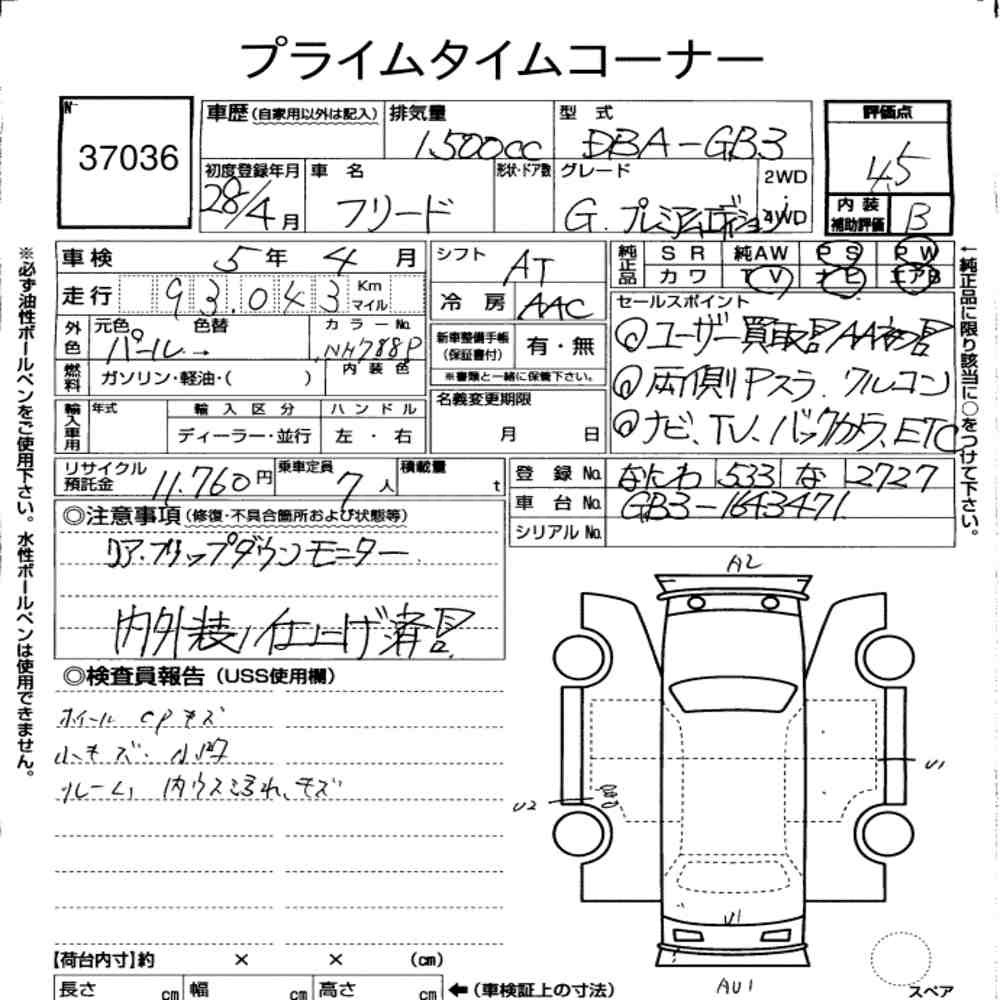 プライムタイムコーナー
№
37036
車歴(自家用以外は記入)
排気量
1500cc
型 式
DBA-GB3
評価点
4.5
初度登録年月
28/4月
車 名
フリード
形状・ドア数
グレード
G.プレミアムエディション
2WD
4WD
内装
補助評価
B
車検 5年 4月
シフト
AT
純正品
S R 純AW P S P W
カワ T V ナビ エアB
走行 93.043 Km
マイル
冷 房 AAC
セールスポイント
◎ユーザー買取
外色
元色 色替
パール→
カラーNo.
NH788P
内 装 色
新車整備手帳
(保証書付)
有・無
※書類と一緒に保管下さい。
◎両側Pスラ、クルコン
燃料
ガソリン・軽油・( )
名義変更期限
月 日
◎ナビ、TV、バックカメラ、ETC
輸入車用
年式
輸 入 区 分
ディーラー・並行
ハ ン ド ル
左 ・ 右
リサイクル
預託金
11.760円
乗車定員
7人
積載量
t
登 録 No. なにわ 533 な 2727
車 台 No. GB3-1643471
シリアル No.
◎注意事項(修復・不具合箇所および状態等)
リア.フリップダウンモニター
内外装仕上げ済
◎検査員報告(USS使用欄)
ホイール CPキズ
小キズ・小凹
ルーム,内ウス汚れ、キズ
A2
U1
U2
U1
AU1
スペア
【荷台内寸】約 × × (cm)
長さ cm 幅 cm 高さ cm ←(車検証上の寸法)
※必ず油性ボールペンをご使用下さい。水性ボールペンは使用できません。
←純正品に限り該当に○をつけて下さい。